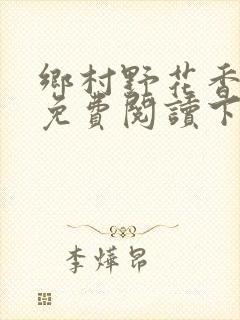 鄉村野花香
免費閱讀下
李燁昂